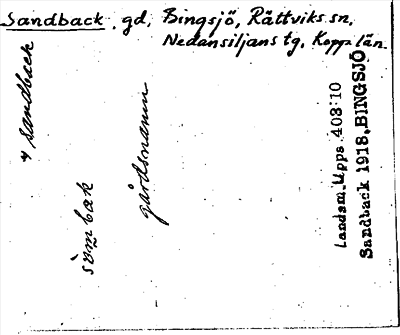 Sandback, gd, Bingsjö, Rättviks sn,
Nedansiljans tg, Kopp. län.
sandback
sàmbæk
gårdsnamn
Landsm. Upps. 403:10
Sandback 1918, BINGSJÖ